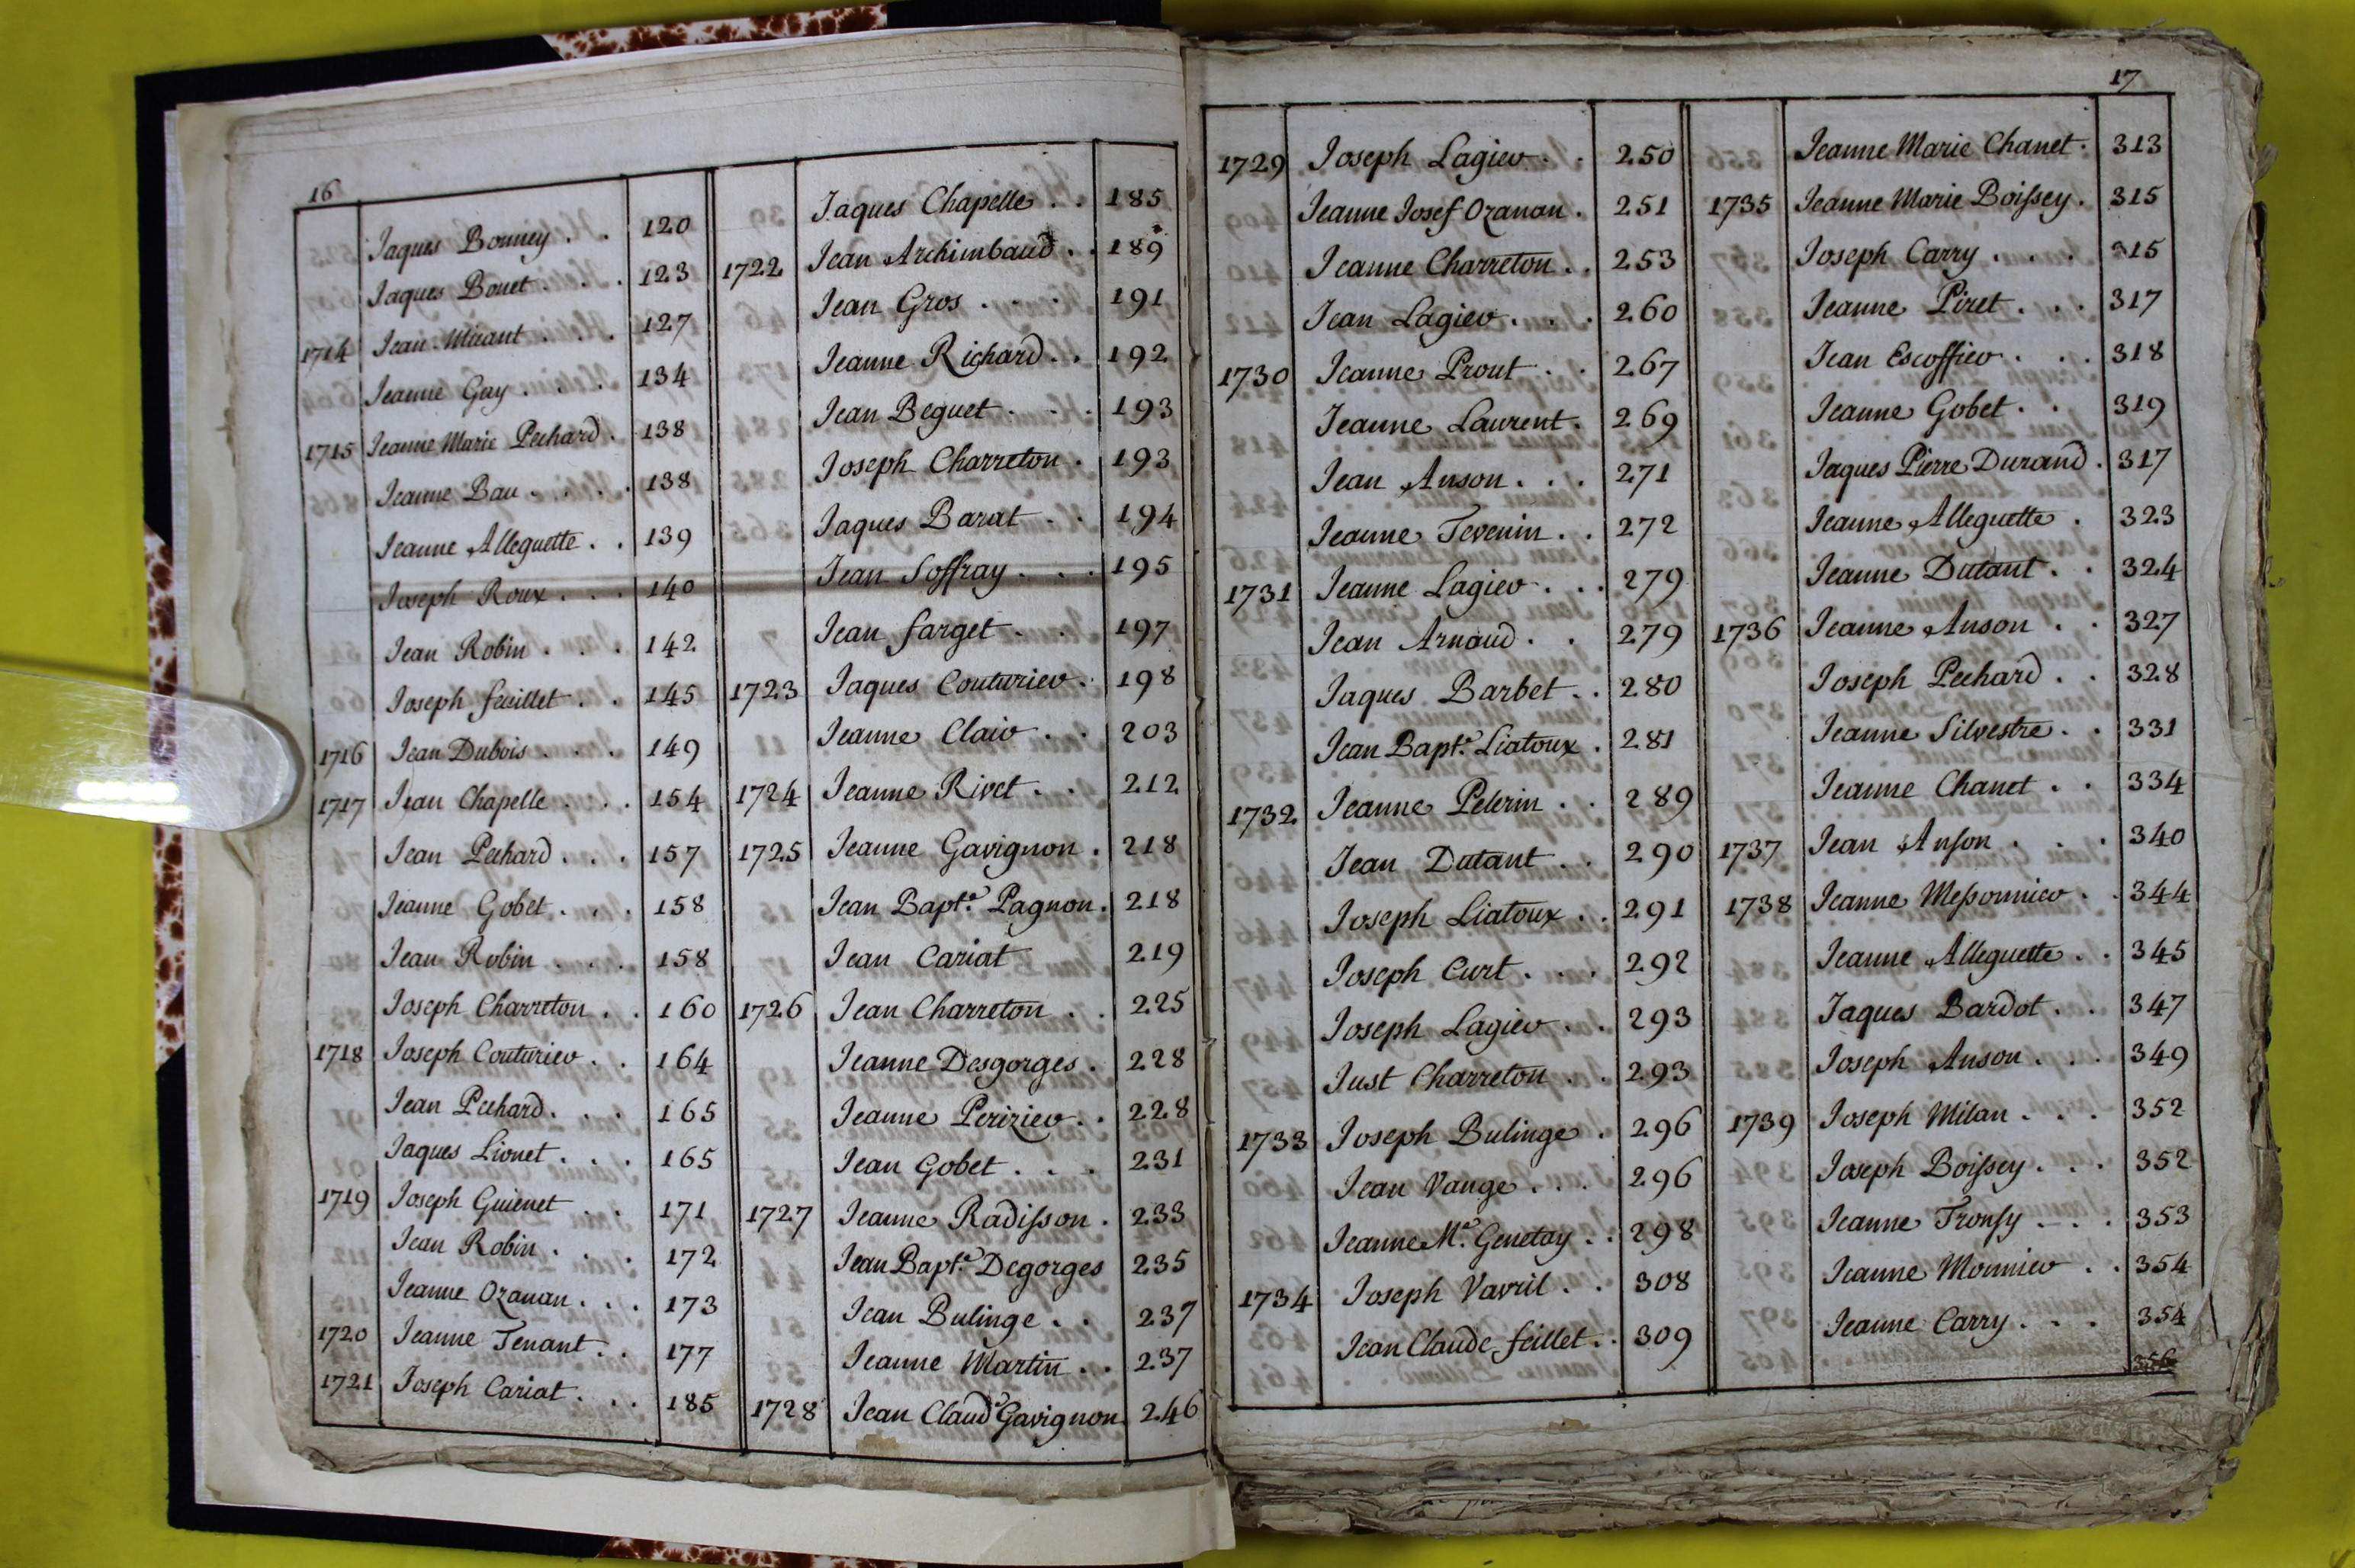 16
Jaques Bonney . . 120
Jaques Bonet . . . 123
1714 Jean Mirant . . . 127
Jeanne Gay . . . 134
1715 Jeanne Marie Pechard . 138
Jeanne Bau . . . . 138
Jeanne Alleguette . . 139
Joseph Roux . . . 140
Jean Robin . . . 142
Joseph feuillet . . 145
1716 Jean Dubois . . . 149
1717 Jean Chapelle . . . 154
Jean Pechard . . . 157
Jeanne Gobet . . . 158
Jean Robin . . . 158
Joseph Charreton . . 160
1718 Joseph Couturier . . 164
Jean Pechard . . . 165
Jaques Lionet . . . 165
1719 Joseph Guienet . . 171
Jean Robin . . . 172
Jeanne Ozanan . . . 173
1720 Jeanne Tenant . . 177
1721 Joseph Cariat . . . 185
Jaques Chapelle . . 185
1722 Jean Archimbaud . . 189
Jean Gros . . . 191
Jeanne Richard . . 192
Jean Beguet . . . 193
Joseph Charreton . 193
Jaques Barat . . 194
Jean Soffray . . . 195
Jean farget . . 197
1723 Jaques Couturier . 198
Jeanne Clair . . 203
1724 Jeanne Rivet . . 212
1725 Jeanne Gavignon . 218
Jean Bapt.e Pagnon . 218
Jean Cariat 219
1726 Jean Charreton . . 225
Jeanne Desgorges . 228
Jeanne Perizier . . 228
Jean Gobet . . . 231
1727 Jeanne Radisson . 233
Jean Bapt.e Degorges 235
Jean Bulinge . . 237
Jeanne Martin . . 237
1728 Jean Claude Gavignon 246
17
1729 Joseph Lagier . . 250
Jeanne Josef Ozanan . 251
Jeanne Charreton . . 253
Jean Lagier . . . 260
1730 Jeanne Prout . . 267
Jeanne Laurent . 269
Jean Anson . . . 271
Jeanne Tevenin . . 272
1731 Jeanne Lagier . . . 279
Jean Arnaud . . 279
Jaques Barbet . . 280
Jean Bapt.e Liatoux . 281
1732 Jeanne Pelerin . . 289
Jean Dutant . . 290
Joseph Liatoux . . 291
Joseph Curt . . . 292
Joseph Lagier . . 293
Just Charreton . . 293
1733 Joseph Bulinge . 296
Jean Vange . . . 296
Jeanne M.e Genetay . . 298
1734 Joseph Vavril . . 308
Jean Claude feillet . . 309
Jeanne Marie Chanet . 313
1735 Jeanne Marie Boissey . 315
Joseph Carry . . . . 315
Jeanne Piret . . . 317
Jean Escoffier . . . 318
Jeanne Gobet . . 319
Jaques Pierre Durand . 317
Jeanne Alleguette . 323
Jeanne Dutant . . 324
1736 Jeanne Anson . . 327
Joseph Pechard . . 328
Jeanne Silvestre . . 331
Jeanne Chanet . . 334
1737 Jean Anson . . . 340
1738 Jeanne Messonnier . . 344
Jeanne Alleguette . . 345
Jaques Bardot . . 347
Joseph Anson . . . 349
1739 Joseph Milan . . . 352
Joseph Boissey . . . 352
Jeanne Tronsy . . . 353
Jeanne Monnier . . 354
Jeanne Carry . . . 354